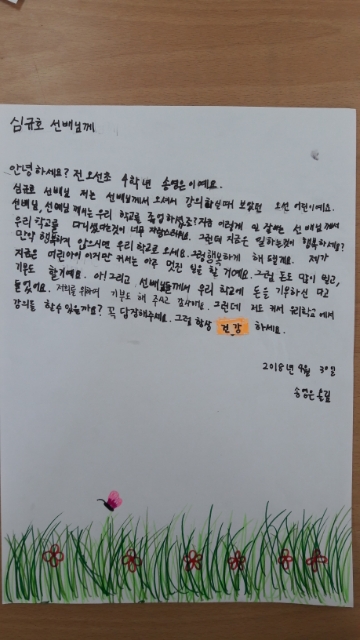 심규호 선배님께
안녕하세요? 전 오선초 4학년 송영은이예요.
심규호 선배님 저는 선배님께서 오셔서 강의하실때 보았던 오선 어린이예요.
선배님, 선배님께서는 우리 학교를 졸업하셨죠? 지금 이렇게 일 잘하는 선배님께서
우리 학교를 다니셨다는것이 너무 자랑스러워요. 그런데 지금은 일하는것이 행복하세요?
만약 행복하지 않으시면 우리 학교로 오세요. 그럼 행복하게 해 드릴게요. 제가
지금은 어린아이 이지만 커서는 아주 멋진 일을 할 거예요. 그럼 돈도 많이 벌고,
기부도 할거예요. 아! 그리고 선배님들께서 우리 학교에 돈을 기부하신 다고
들었어요. 저희를 위하여 기부도 해 주시고 감사해요. 그런데 저도 커서 우리학교에서
강의를 할 수 있을까요? 꼭 답장해주세요. 그럼 항상 건강 하세요.
2018년 4월 30일
송영은 올림